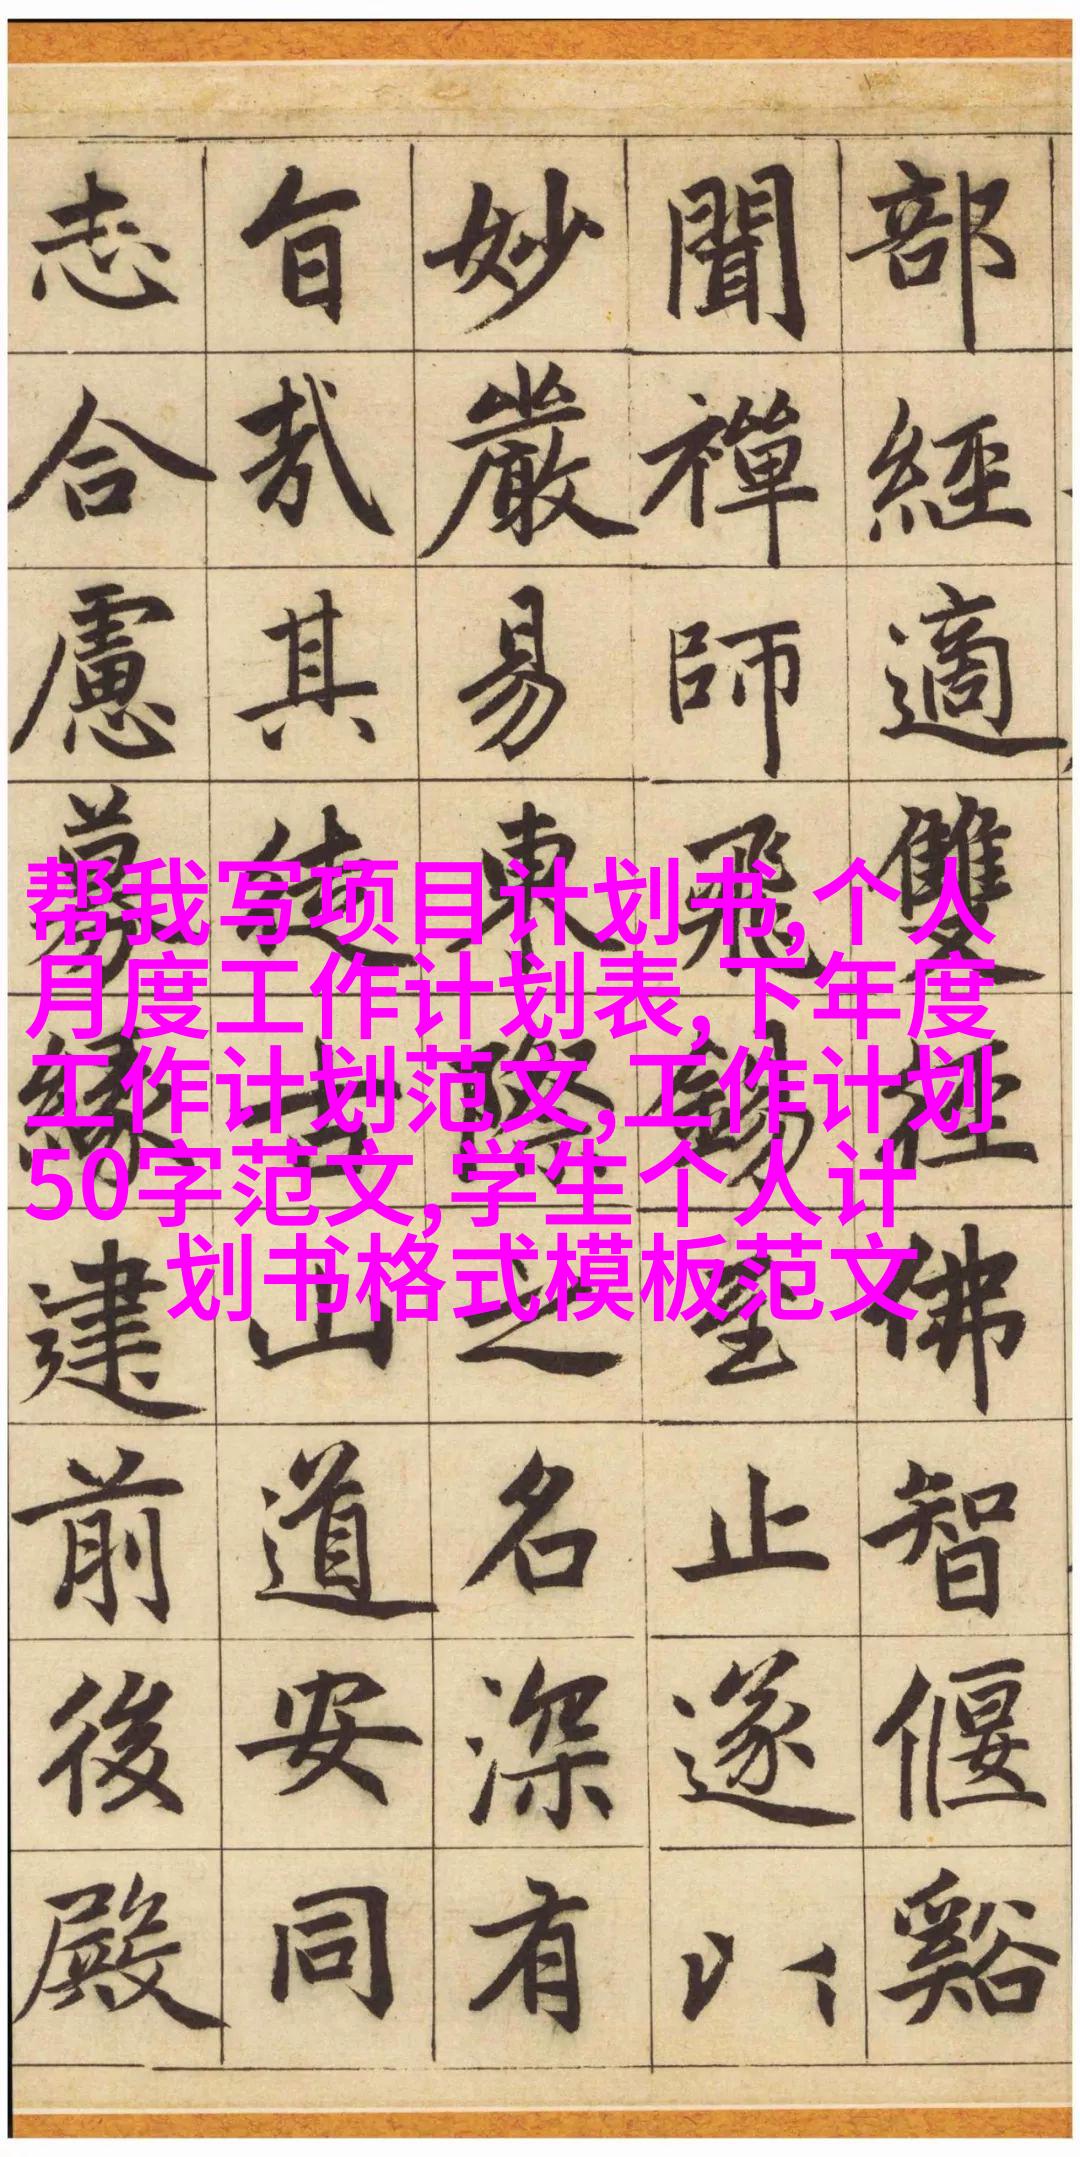 部經適雙徑佛智偃谿
聞禪師飛錫至止遂以
妙嚴易東際之名深有
旨哉其徒古山道安同
志合慮募緣建前後殿
帮我写项目计划书,个人
月度工作计划表,下年度
工作计划范文,工作计划
50字范文,学生个人计
划书格式模板范文